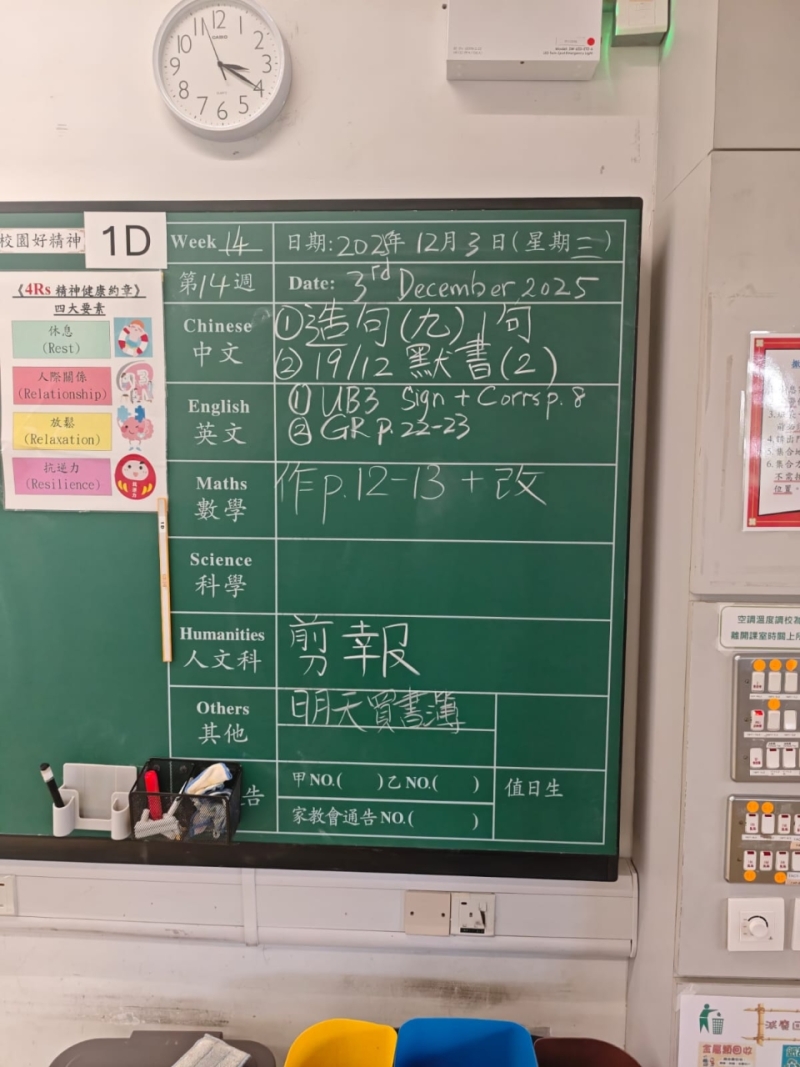 12
1
2
3
4
5
6
7
8
9
10
11
CASIO
校園好精神
1D
Week 14
日期: 2025年 12月 3日(星期三)
第14週
Date: 3rd December 2025
《4Rs 精神健康約章》
四大要素
休息
(Rest)
人際關係
(Relationship)
放鬆
(Relaxation)
抗逆力
(Resilience)
Chinese
中文
① 造句(九) 1句
② 19/12 默書(2)
English
英文
① UB3 Sign + Corrs p. 8
② GR p. 22-23
Maths
數學
作 p. 12-13 + 改
Science
科學
Humanities
人文科
剪報
Others
其他
明天買書簿
告
甲NO.( )乙NO.( )
值日生
家教會通告NO.( )
不需
位置。
空調溫度調校為
離開課室時關上所
減廢回
金屬類回收